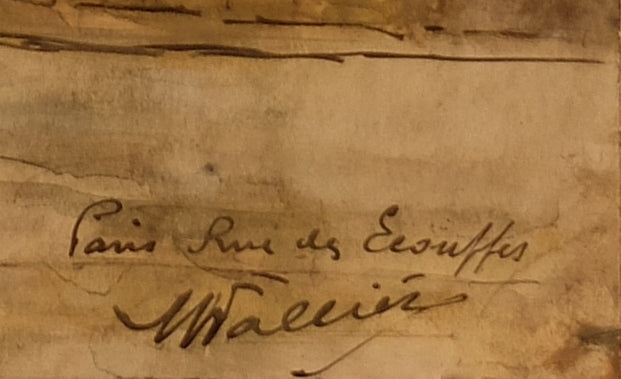 Paris Rue des Ecouffes